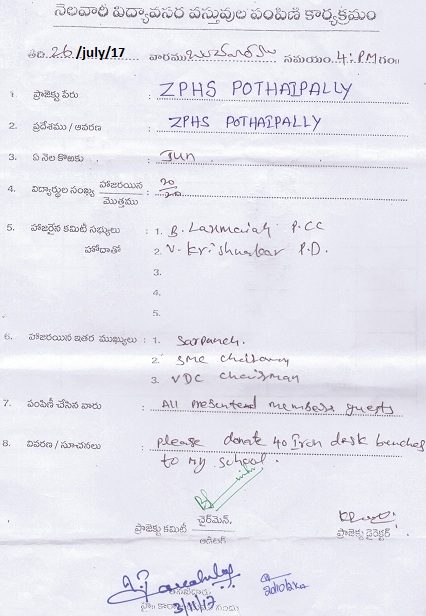 నెలవారీ విద్యావసర వస్తువుల పంపిణి కార్యక్రమం
తేది 26/july/17 వారము బుధవారము సమయం 4: PM గం॥
1. ప్రాజెక్టు పేరు : ZPHS POTHAIPALLY
2. ప్రదేశము / ఆవరణ : ZPHS POTHAIPALLY
3. ఏ నెల కొఱకు : Jun
4. విద్యార్థుల సంఖ్య హాజరయిన / మొత్తము : 20/20
5. హాజరైన కమిటీ సభ్యులు : 1. B. Laxmaiah P.CC
హోదాతో 2. V. P.D.
3.
4.
5.
6. హాజరయిన ఇతర ముఖ్యులు : 1. Sarpanch.
2. SMC
3. VDC Chairman
7. పంపిణీ చేసిన వారు : All presented members guests
8. వివరణ / సూచనలు : please donate 40 Iron desk benches
to my school.
ప్రాజెక్టు కమిటీ చైర్‌మెన్. / ఆడిటర్ ప్రాజెక్టు డైరెక్టర్
3/11/17